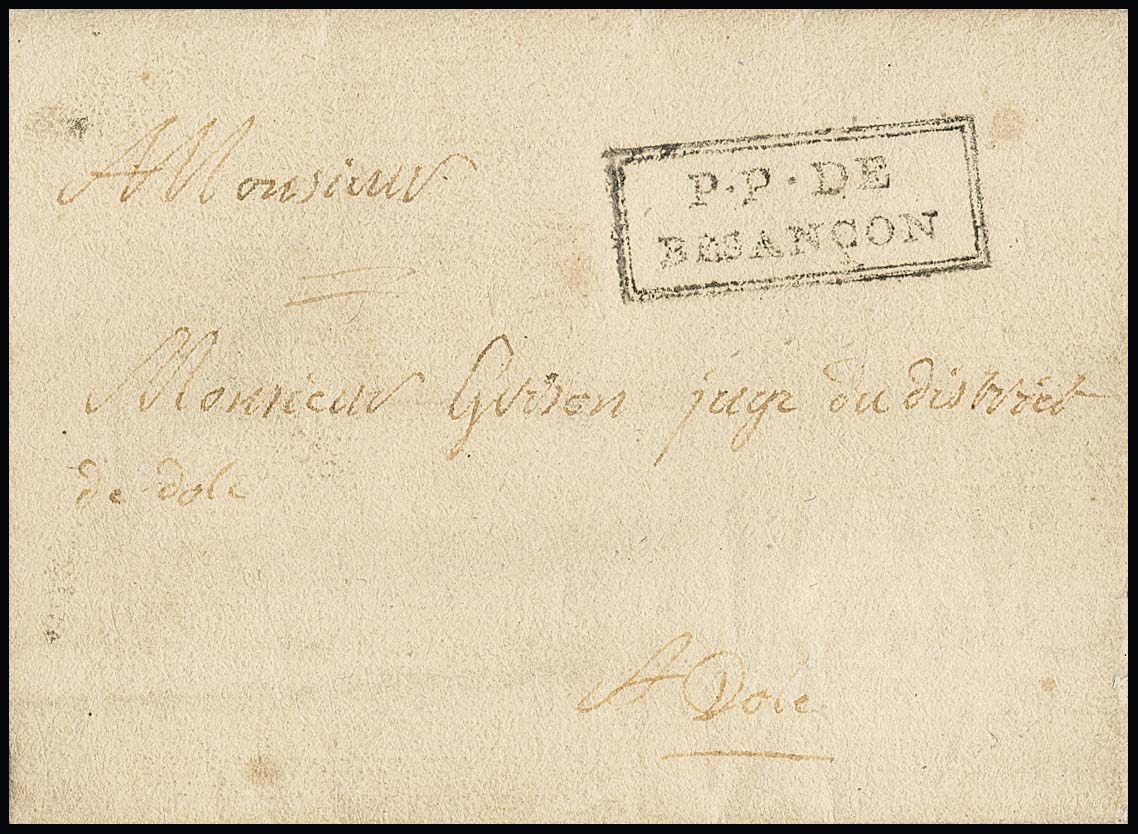 A Monsieur
P.P. DE
BESANÇON
Monsieur juge du district
de dole
A Dole